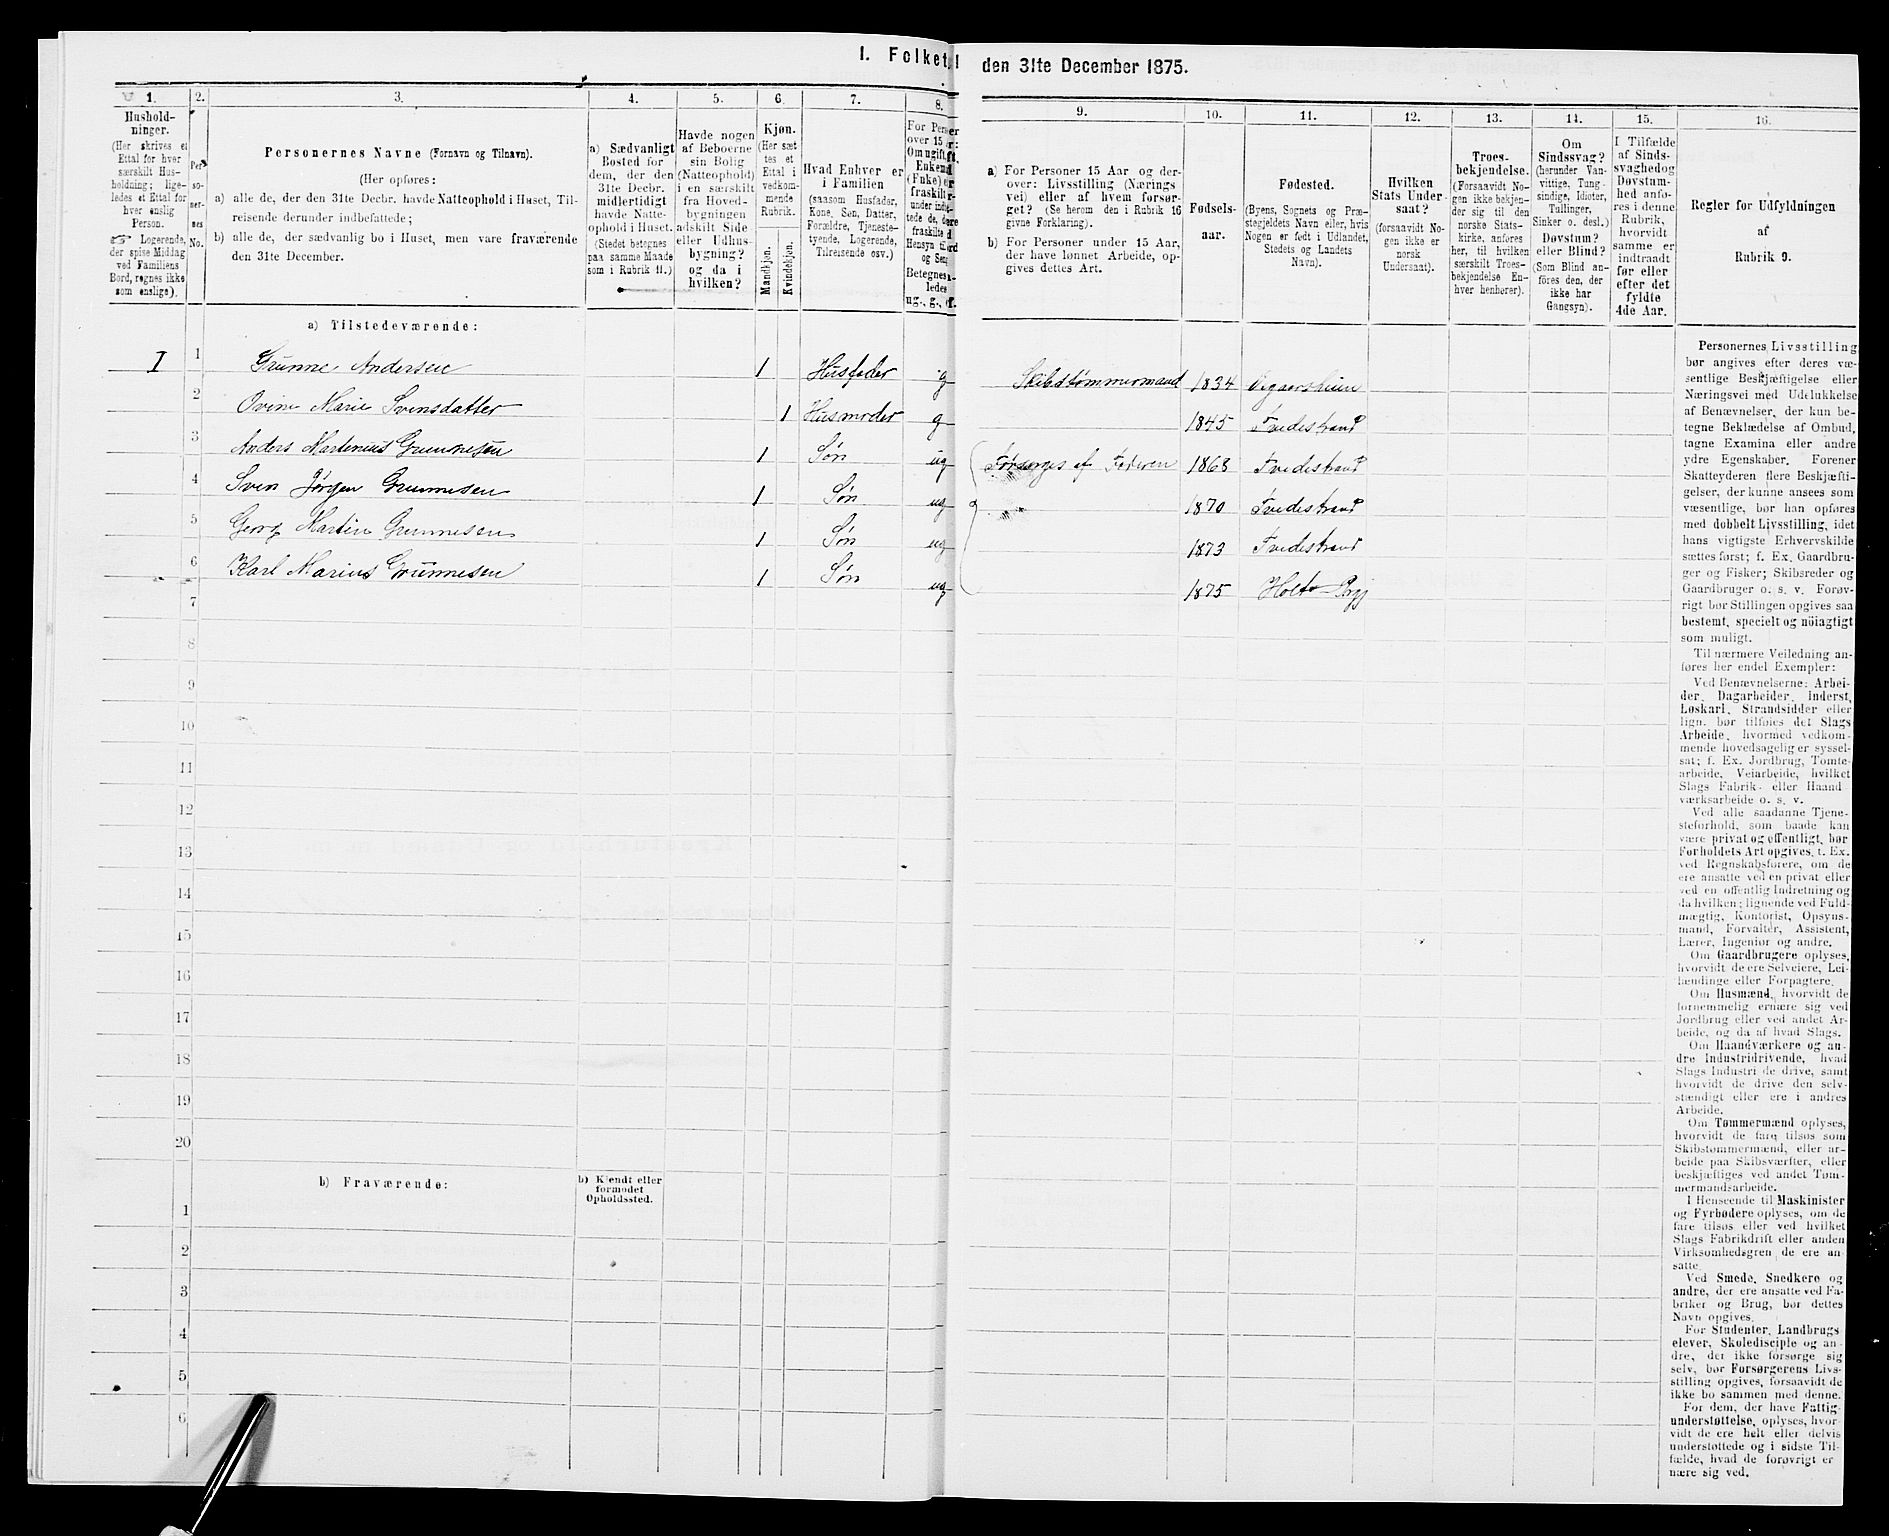 I. Folket
den 31te December 1875.
1.
2.
3.
4.
5.
6.
7.
8.
9.
10.
11.
12.
13.
14.
15.
16.
Hushold-
ninger.
(Her skrives et
Ettal for hver
særskilt Hus-
holdning; lige-
ledes et Ettal for
hver enslig
Person.
☞ Logerende,
der spise Middag
ved Familiens
Bord, regnes ikke
som enslige).
Per
so-
ner-
nes
No.
Personernes Navne (Fornavn og Tilnavn).
(Her opføres:
a) alle de, der den 31te Decbr. havde Natteophold i Huset, Til-
reisende derunder indbefattede;
b) alle de, der sædvanlig bo i Huset, men vare fraværende
den 31te December.
a) Sædvanligt
Bosted for
dem, der den
31te Decbr.
midlertidigt
havde Natte-
ophold i Huset.
(Stedet betegnes
paa samme Maade
som i Rubrik 11.)
Havde nogen
af Beboerne
sin Bolig
(Natteophold)
i en særskilt
fra Hoved-
bygningen
adskilt Side
eller Udhus-
bygning?
og da i
hvilken?
Kjøn.
(Her sæt
tes et
Ettal i
vedkom-
mende
Rubrik.
Mandkjøn.
Kvindekjøn.
Hvad Enhver er
i Familien
(saasom Husfader,
Kone, Søn, Datter,
Forældre, Tjeneste-
tyende, Logerende,
Tilreisende osv.)
For Personer
over 15 Aar:
Om ugift,
Enkemand
(Enke) eller
fraskilt
Betegnes
ledes
ug., g.,
a) For Personer 15 Aar og der-
over: Livsstilling (Nærings
vei) eller af hvem forsør-
get? (Se herom den i Rubrik 16
givne Forklaring).
b) For Personer under 15 Aar,
der have lønnet Arbeide, op-
gives dettes Art.
Fødsels-
aar.
Fødested.
(Byens, Sognets og Præ-
stegjeldets Navn eller, hvis
Nogen er født i Udlandet,
Stedets og Landets
Navn).
Hvilken
Stats Under
saat?
(forsaavidt No-
gen ikke er
norsk
Undersaat).
Troes-
bekjendelse.
(Forsaavidt No-
gen ikke bekjen-
der sig til den
norske Stats-
kirke, anføres
her, til hvilken
særskilt Troes-
bekjendelse En-
hver henhører).
Om
Sindssvag?
(herunder Van-
vittige, Tung-
sindige, Idioter,
Tullinger,
Sinker o. desl.)
Døvstum?
eller Blind?
(Som Blind an-
føres den, der
ikke har
Gangsyn).
I Tilfælde
af Sinds-
svaghed og
Døvstum-
hed anfø-
res i denne
Rubrik,
hvorvidt
samme er
indtraadt
før eller
efter det
fyldte
4de Aar.
Regler for Udfyldningen
af
Rubrik 9.
a) Tilstedeværende:
I 1 Gunne Andersen 1 Husfader g Skibstømmermand 1834
2 Ovine Marie Svensdatter 1 Husmoder g 1845 Tvedestrand
3 Anders Martenius Gunnesen 1 Søn ug Forsørges af Faderen 1868 Tvedestrand
4 Sven Jørgen Gunnesen 1 Søn ug 1870 Tvedestrand
5 Georg Martin Gunnesen 1 Søn ug 1873 Tvedestrand
6 Karl Marius Gunnesen 1 Søn ug 1875 Holt
7
8
9
10
11
12
13
14
15
16
17
18
19
20
b) Fraværende:
b) Kjendt eller
formodet
Opholdssted.
1
2
3
4
5
6
Personernes Livsstilling
bør angives efter deres væ-
sentlige Beskjæftigelse eller
Næringsvei med Udelukkelse
af Benævnelser, der kun be-
tegne Beklædelse af Ombud,
tagne Examina eller andre
ydre Egenskaber. Forener
Skatteyderen flere Beskjæfti-
gelser, der kunne ansees som
væsentlige, bør han opføres
med dobbelt Livsstilling, idet
hans vigtigste Erhvervskilde
sættes først; f. Ex. Gaardbru-
ger og Fisker; Skibsreder og
Gaardbruger o. s. v. Forøv-
rigt bør Stillingen opgives saa
bestemt, specielt og nöiagtigt
som muligt.
Til nærmere Veiledning an-
føres her endel Exempler:
Ved Benævnelserne: Arbei-
der, Dagarbeider, Inderst,
Løskarl, Strandsidder eller
lign. bør tilføies det Slags
Arbeide, hvormed vedkom-
mende hovedsagelig er syssel-
sat; f. Ex. Jordbrug, Tomte-
arbeide, Veiarbeide, hvilket
Slags Fabrik- eller Haand
værksarbeide o. s. v.
Ved alle saadanne Tjene-
steforhold, som baade kan
være privat og offentligt, bør
Forholdets Art opgives, t. Ex.
ved Regnskabsførere, om de
ere ansatte ved en privat eller
ved en offentlig Indretning og
da hvilken; lignende ved Fuld-
mægtig, Kontorist, Opsyns-
mand, Forvalter, Assistent,
Lærer, Ingeniør og andre.
Om Gaardbrugere oplyses,
hvorvidt de ere Selveiere, Lei-
lændinge eller Forpagtere.
Om Husmænd, hvorvidt de
fornemmelig ernære sig ved
Jordbrug eller ved andet Ar-
beide, og da af hvad Slags.
Om Haandværkere og an-
dre Industridrivende, hvad
Slags Industri de drive, samt
hvorvidt de drive den selv-
stændigt eller ere i andres
Arbeide.
Om Tømmermænd oplyses,
hvorvidt de fare tilsøs som
Skibstømmermænd, eller ar-
beide paa Skibsværfter, eller
beskjæftiges ved andet Tøm-
mermandsarbeide.
I Henseende til Maskinister
og Fyrbødere oplyses, om de
fare tilsøs eller ved hvilket
Slags Fabrikdrift eller anden
Virksomhedsgren de ere an
satte.
Ved Smede, Snedkere og
andre, der ere ansatte ved Fa-
briker og Brug, bør dettes
Navn opgives.
For Studenter, Landbrugs
elever, Skoledisciple og an-
dre, der ikke forsørge sig
selv, bør Forsørgerens Livs-
stilling opgives, forsaavidt de
ikke bo sammen med denne.
For dem, der have Fattig
understøttelse, oplyses, hvor-
vidt de ere helt eller delvis
understøttede og i sidste Til-
fælde, hvad de forøvrigt er
nære sig ved.